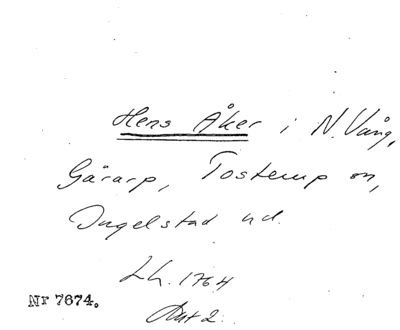 Hens Åker i N. Vång,
Gärarp, Tosterup sn,
Ingelstad hd.
Lh. 1764
Akt 2.
Nr 7674.